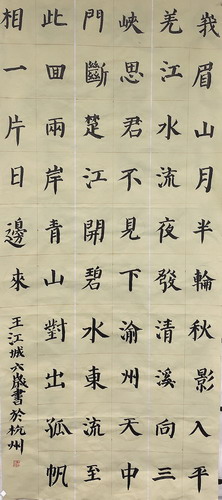 峩眉山月半輪秋影入平
羌江水流夜發清溪向三
峽思君不見下渝州天中
門斷楚江開碧水東流至
此回兩岸青山對出孤帆
相一片日邊來
王江城六歲書於杭州